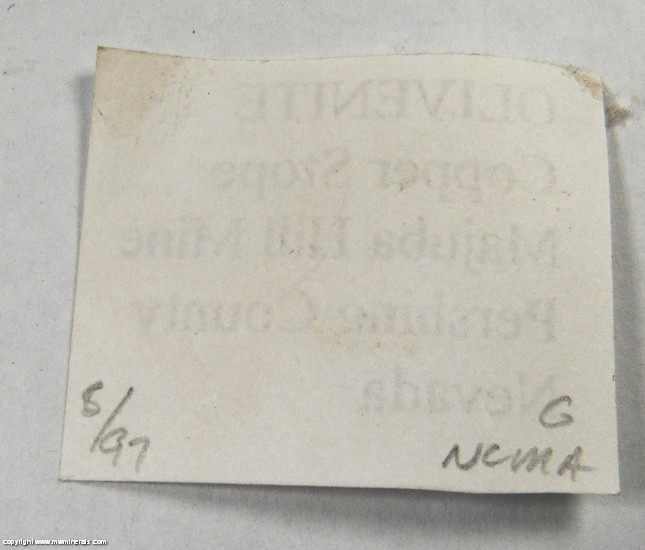 OLIVENITE
Copper Stope
Majuba Hill Mine
Pershing County
Nevada
8/97
G
NCMA
copyright www.mwminerals.com